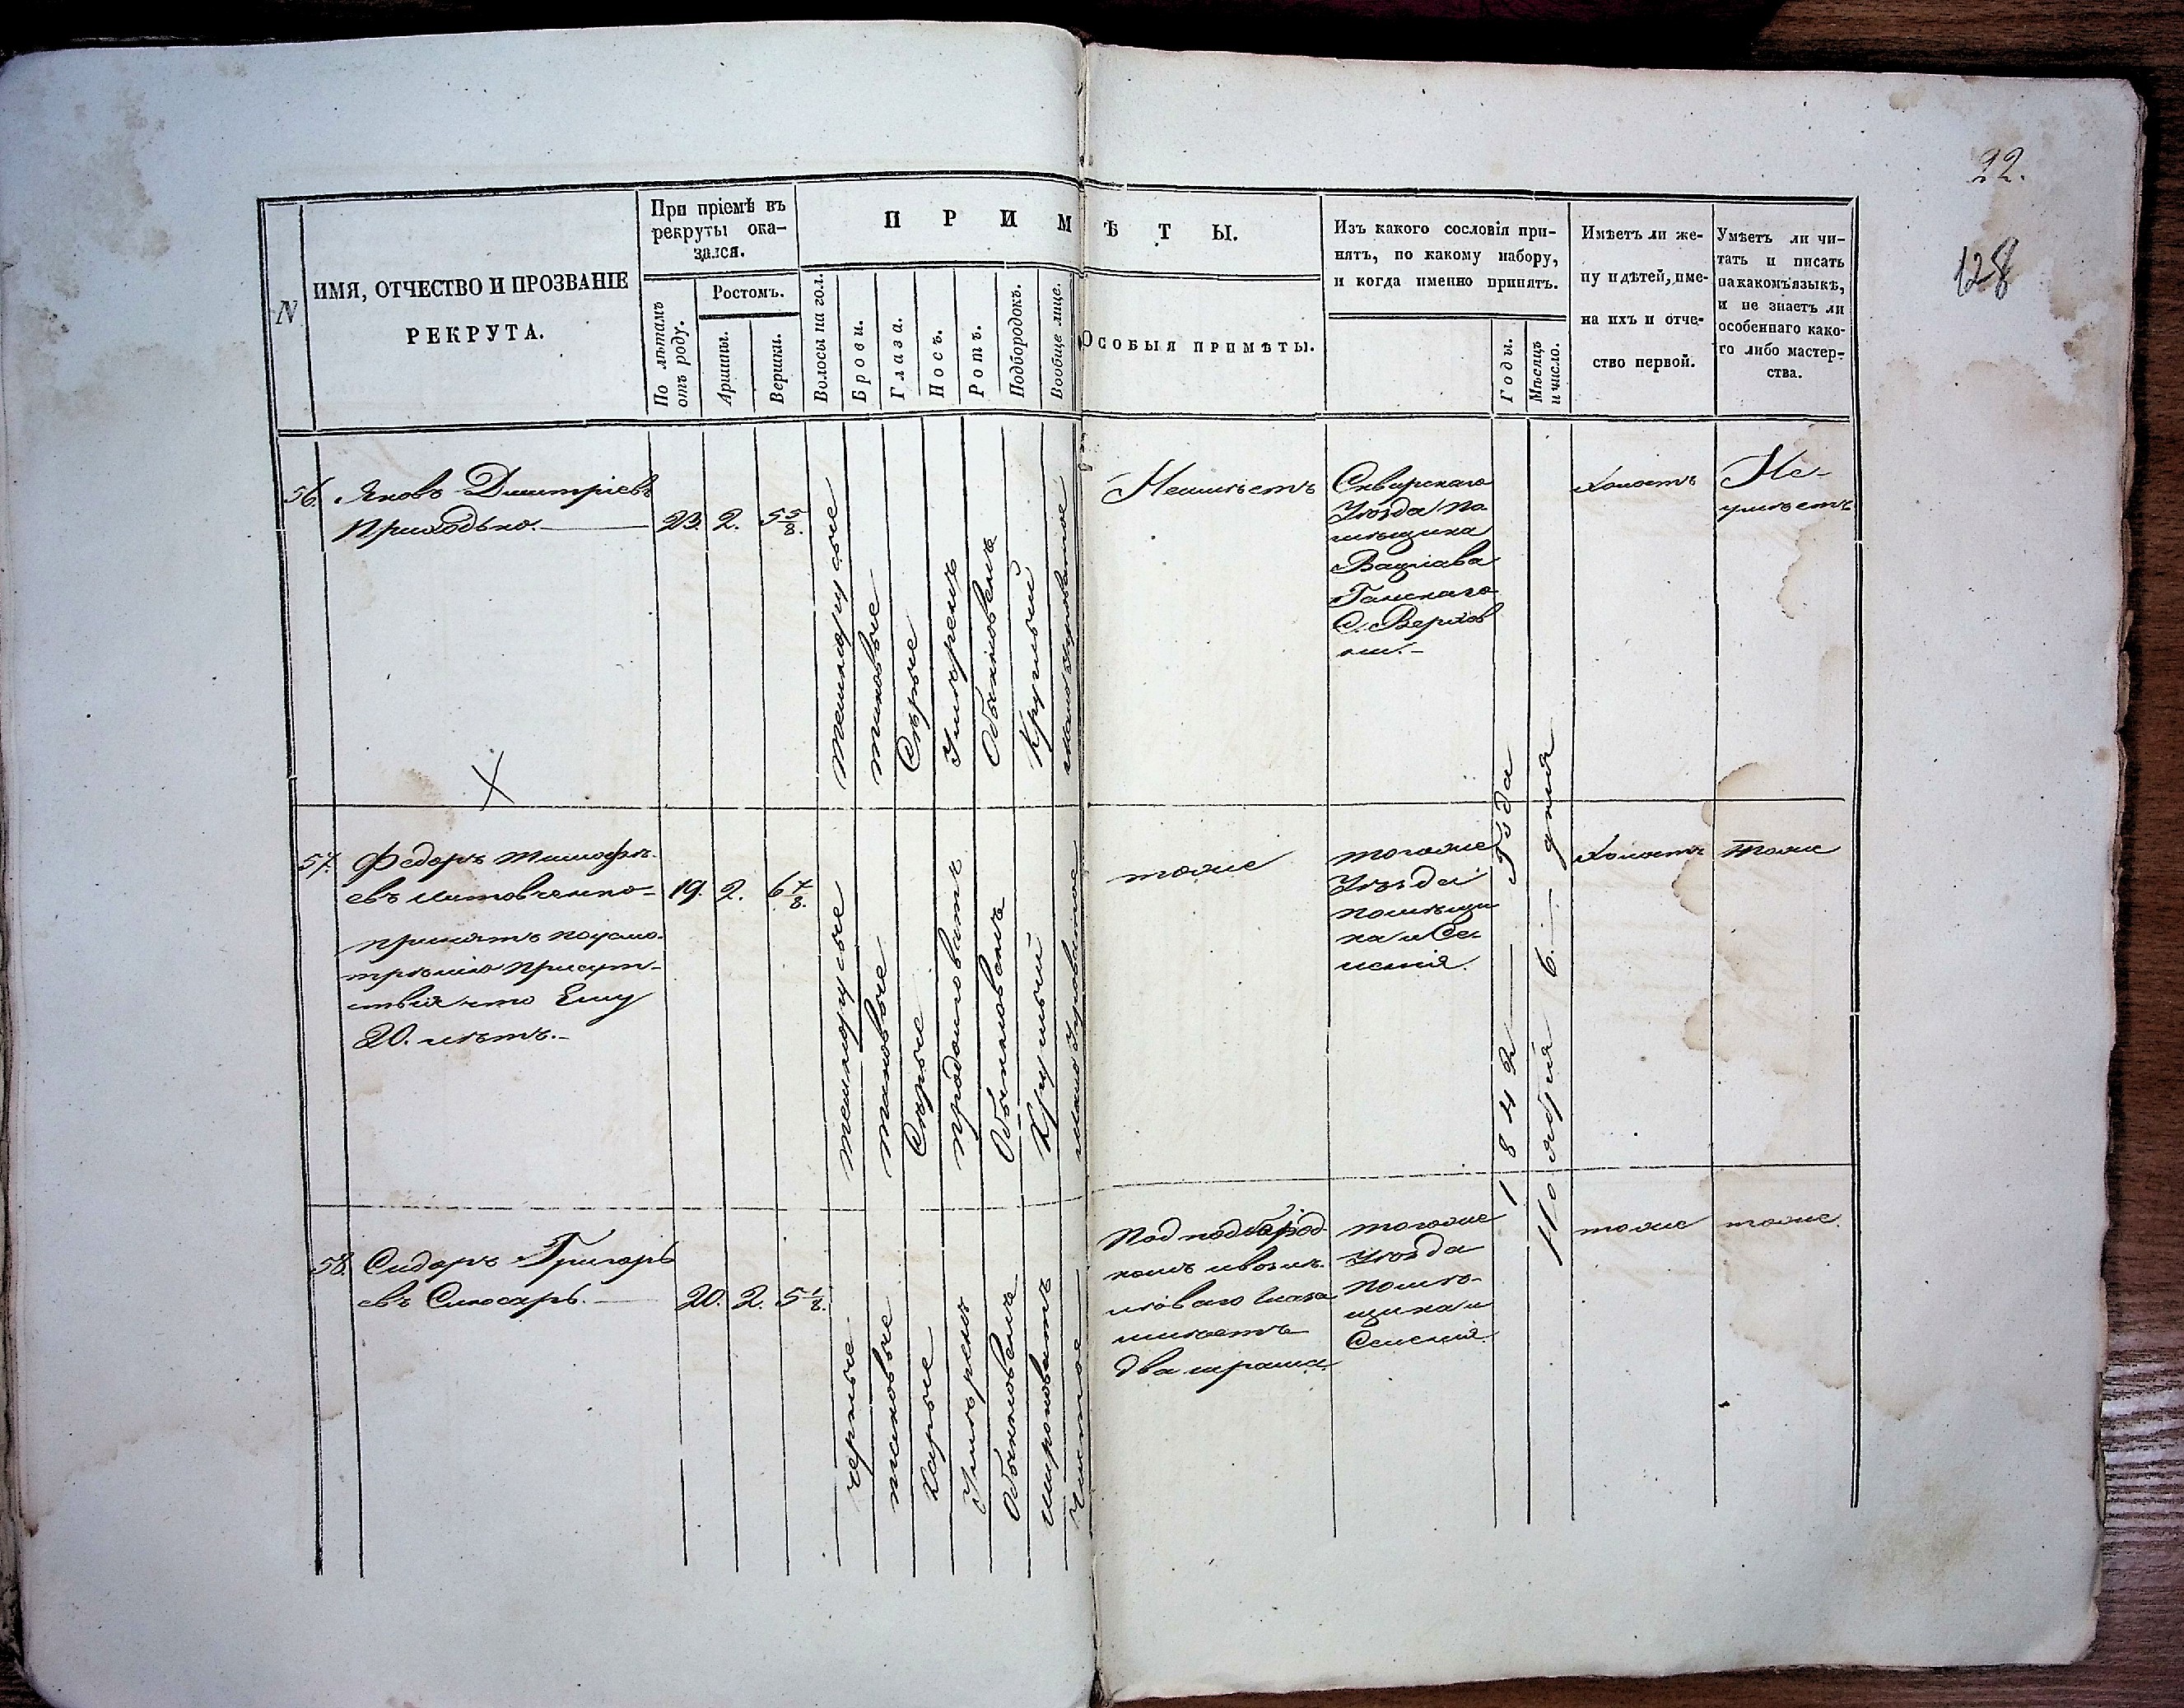 22.
128
N
ИМЯ, ОТЧЕСТВО И ПРОЗВАНІЕ
РЕКРУТА.
При пріемѣ въ
рекруты ока-
зался.
По лѣтамъ
отъ роду.
Ростомъ.
Аршины.
Вершки.
ПРИМѢТЫ.
Волосы на гол.
Брови.
Глаза.
Носъ.
Ротъ.
Подбородокъ.
Вообще лице.
Особыя примѣты.
Изъ какого сословія при-
нятъ, по какому набору,
и когда именно принятъ.
Годы.
Мѣсяцъ
и число.
Имѣетъ ли же-
ну и дѣтей, име-
на ихъ и отче-
ство первой.
Умѣетъ ли чи-
тать и писать
на какомъ языкѣ,
и не знаетъ ли
особеннаго како-
го либо мастер-
ства.
56.
Яковъ Дмитріевъ
Приходько.
23.
2.
5 5/8.
темнорусые
таковые
Сѣрые
Умѣренъ
Обыкновенъ
Круглый
Неимѣетъ
Сквирскаго
Уѣзда По
мѣщика
Вацлава
Ганскаго
С. Верхов
ни.-
холостъ
Не-
умѣетъ
X
57.
Федоръ Тимофѣ-
евъ Литовченко-
принятъ поусмо-
трѣнію Присут-
ствія что Ему
20. лѣтъ.-
19.
2.
6 7/8.
темнорусые
таковые
Сѣрые
продолговатъ
Обыкновенъ
Круглый
тоже
тогоже
Уѣзда
помѣщи
ка и Се-
ленія.
1842 Года
Ноября 6. дня
холостъ
тоже
58.
Сидоръ Григорь
евъ Слюсарь.
20.
2.
5 1/8.
черные
таковые
Карые
Умѣренъ
Обыкновенъ
широковатъ
Чистое
Под подбород-
комъ ивозлѣ
лѣваго глаза
имѣетъ
два шрама.
тогоже
Уѣзда
помѣ-
щика и
Селенія.
тоже
тоже.